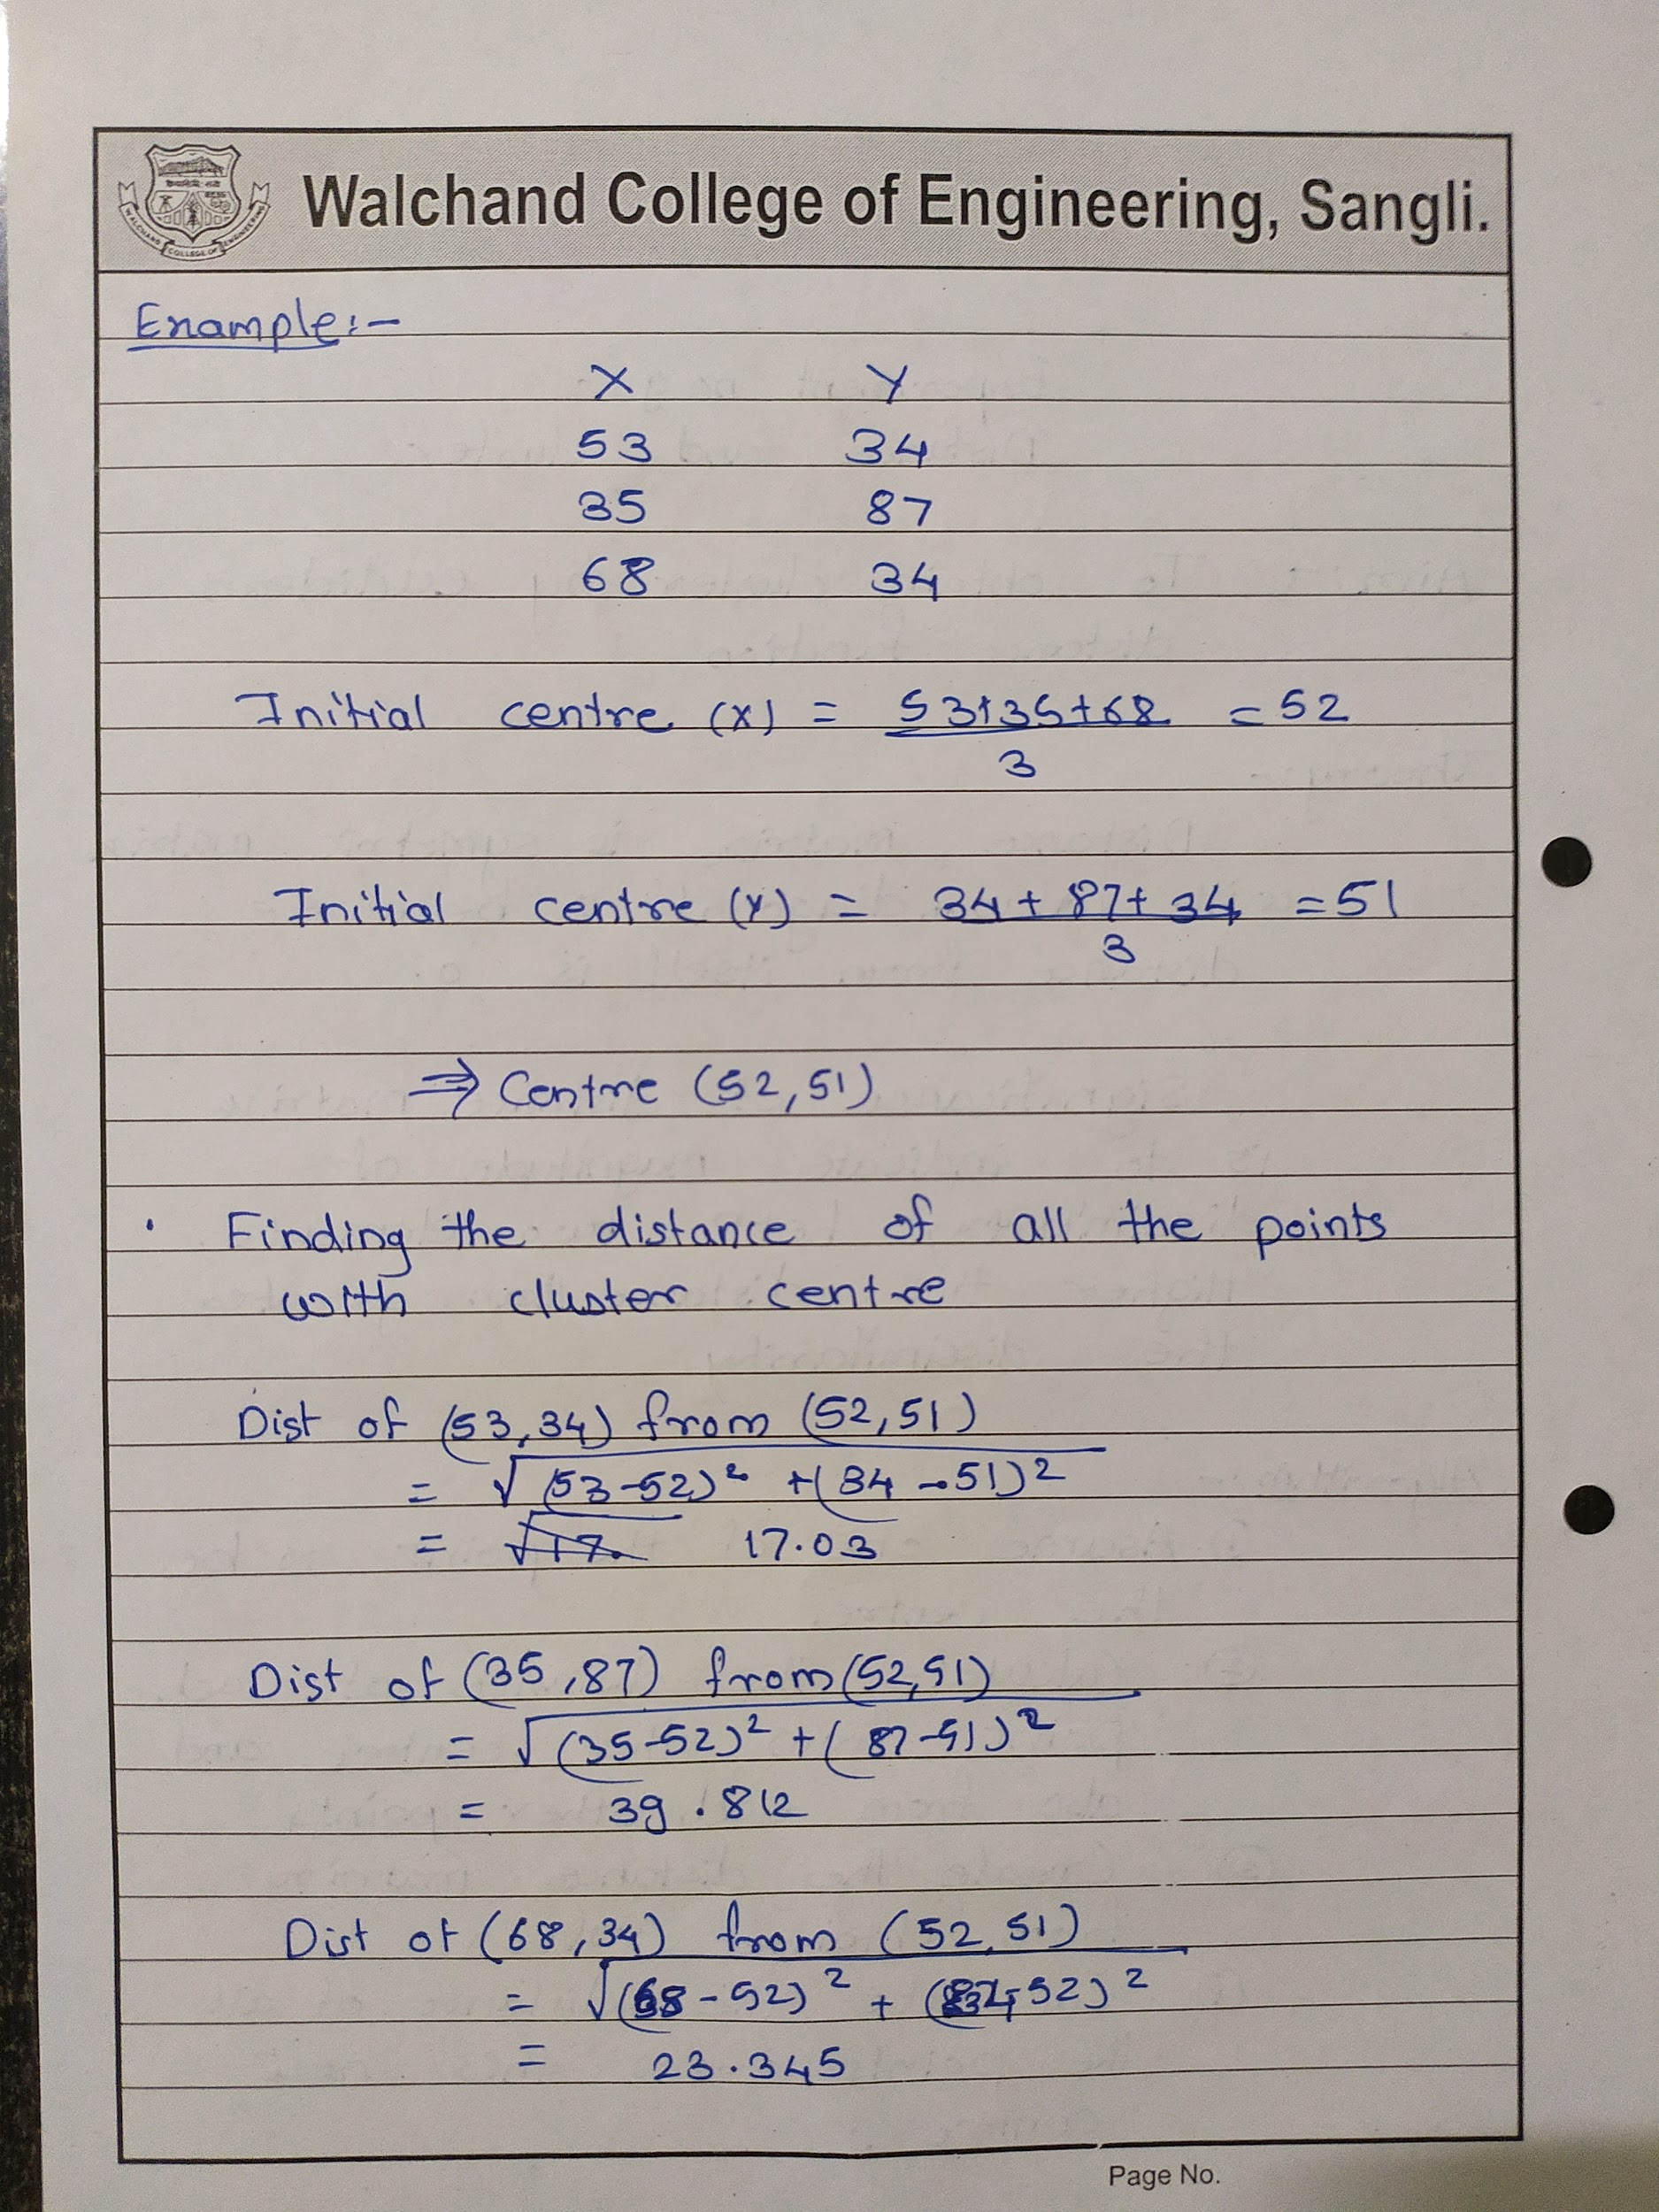 Walchand College of Engineering, Sangli.
WALCHAND COLLEGE OF ENGINEERING
Example:-
X Y
53 34
35 87
68 34
Initial centre (X) = 53+35+68 = 52
3
Initial centre (Y) = 34 + 87 + 34 = 51
3
⇒ Centre (52,51)
• Finding the distance of all the points
with cluster centre
Dist of (53,34) from (52,51)
= √(53-52)² + (34-51)²
= 17.03
Dist of (35,87) from (52,51)
= √(35-52)² + (87-51)²
= 39.812
Dist of (68,34) from (52,51)
= √(68-52)² + (34-52)²
= 23.345
Page No.